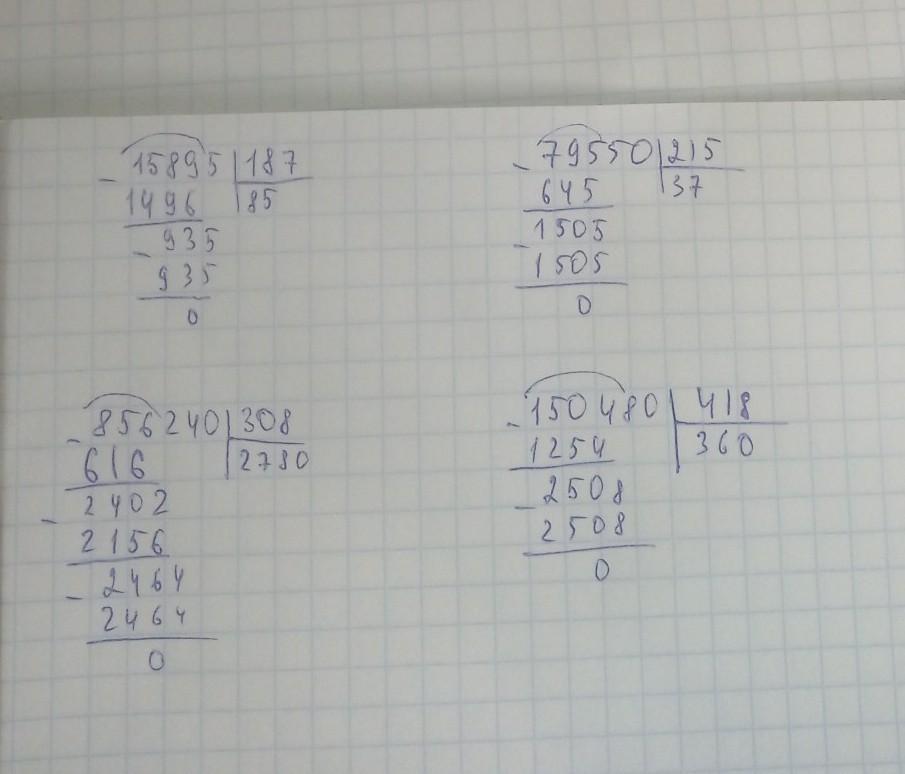 - 15895 | 187
1496 | 85
- 935
935
0
- 79550 | 215
645 | 37
- 1505
1505
0
- 856240 | 308
616 | 2780
- 2402
2156
- 2464
2464
0
- 150480 | 418
1254 | 360
- 2508
2508
0